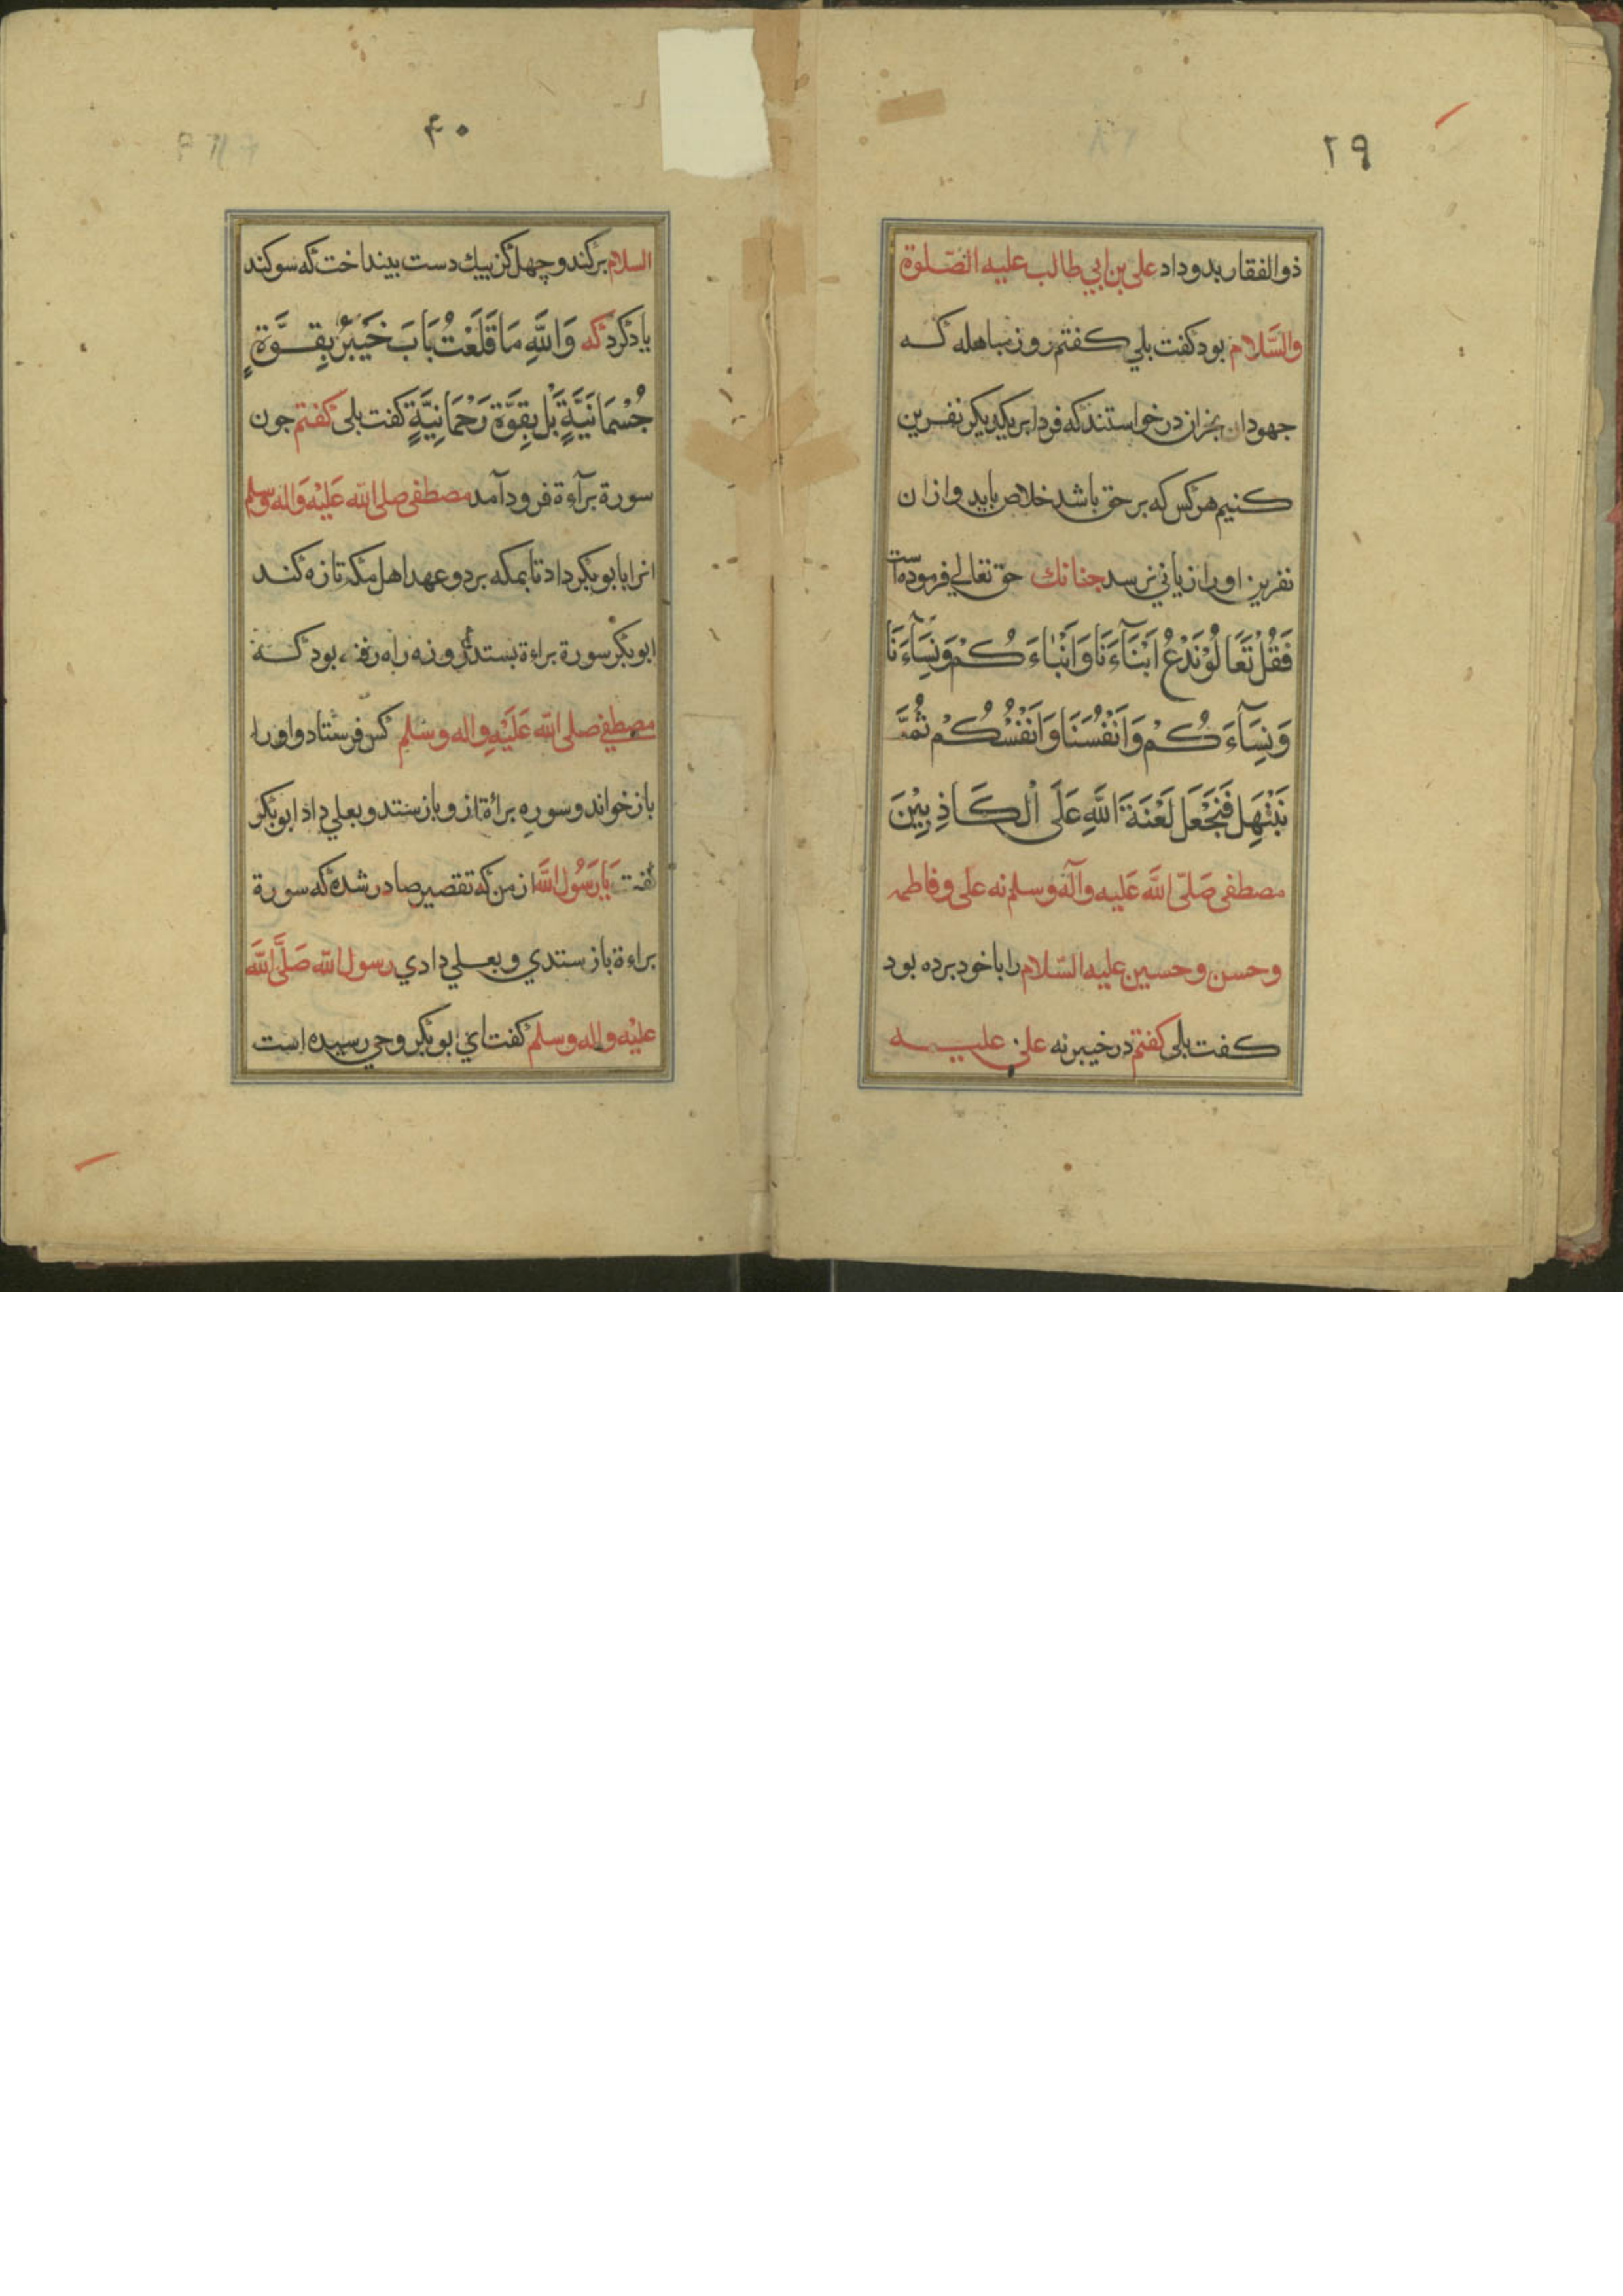 ۲۹
ذوالفقار بدو داد علی بن ابي طالب علیه الصّلوة
والسَّلام بود كفت بلي كفتم روز مباهله كه
جهودان نجران درخواستند كه فردا بر یکدیکر نفرین
كنیم هركس كه بر حق باشد خلاص یابد وازان
نفرین اورا زیاني نرسد جنانك حق تعالي فرموده است
فَقُلْ تَعَالَوْ نَدْعُ اَبْنَآءَنَا وَاَبْنَاءَكُمْ وَنِسَآءَنَا
وَنِسَآءَكُمْ وَاَنْفُسَنَا وَاَنْفُسُكُمْ ثُمَّ
نَبْتَهِلْ فَنَجْعَلْ لَعْنَةَ اللَّهِ عَلَى الْكَاذِبِيْنَ
مصطفی صَلّی اللَّه عَلیه وآله وسلم نه علی و فاطمه
وحسن وحسین علیه السّلام را با خود برده بود
كفت بلی كفتم در خیبر نه علی علیه
۴۰
السلام بركند و چهل كز بیك دست بینداخت كه سوكند
یاد كرد كه وَاللَّهِ مَا قَلَعْتُ بَابَ خَيْبَرُ بِقِوَّةٍ
جُسْمَانِيَّةٍ بَلْ بِقِوَّةٍ رَحْمَانِيَّةٍ كفت بلی كفتم جون
سورة برآءة فرود آمد مصطفی صلی الله عَلَیْه وَاله وسلم
انرا بابوبكر داد تا بمكه برد و عهد اهل مكه تازه كند
ابوبكر سورة براءة بستد روزه راه رفته بود كه
مصطفي صلی الله عَلَیْهِ واله وسَلم كس فرستاد و اورا
باز خواند و سوره برائة ازو باز ستد و بعلي داد ابوبكر
كفت یَارَسُول اللَّه از من كه تقصیر صادر شده كه سورة
براءة باز ستدي و بعلي دادي رسول الله صَلَّی اللَّه
علیْه واله وسلم كفت اي بوبكر وحي رسیده است